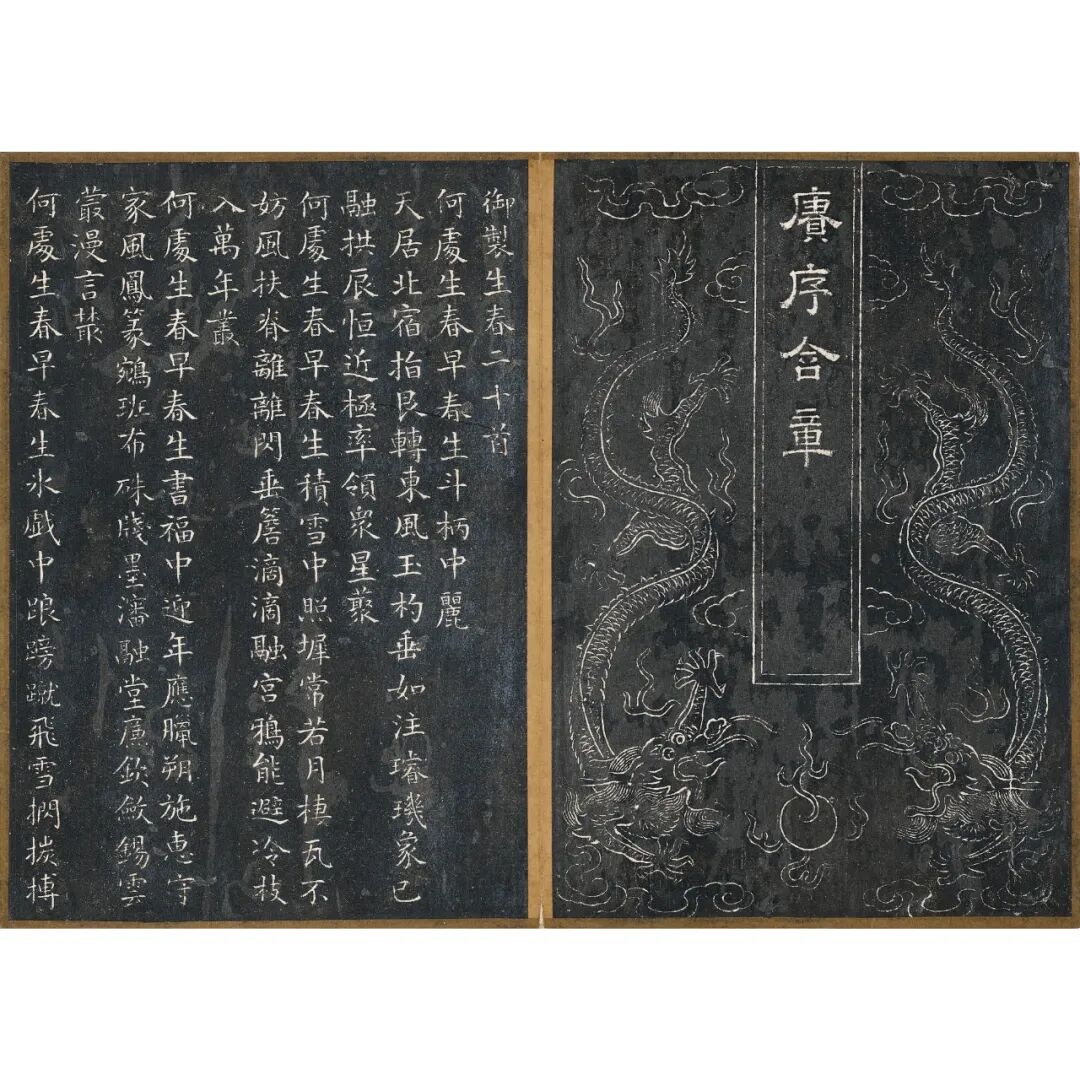 賡序合章
御製生春二十首
何處生春早春生斗柄中麗
天居北宿指艮轉東風玉杓垂如注璿璣象已
融拱辰恒近極率領衆星藂
何處生春早春生積雪中照墀常若月棲瓦不
妨風扶脊離離閃垂簷滴滴融宮鴉能避冷枝
入萬年叢
何處生春早春生書福中迎年應臘朔施惠守
家風鳳篆鵷班布硃牋墨瀋融堂廉欽斂錫雲
叢漫言藂
何處生春早春生氷戲中踉蹡蹴飛雪挏挨搏